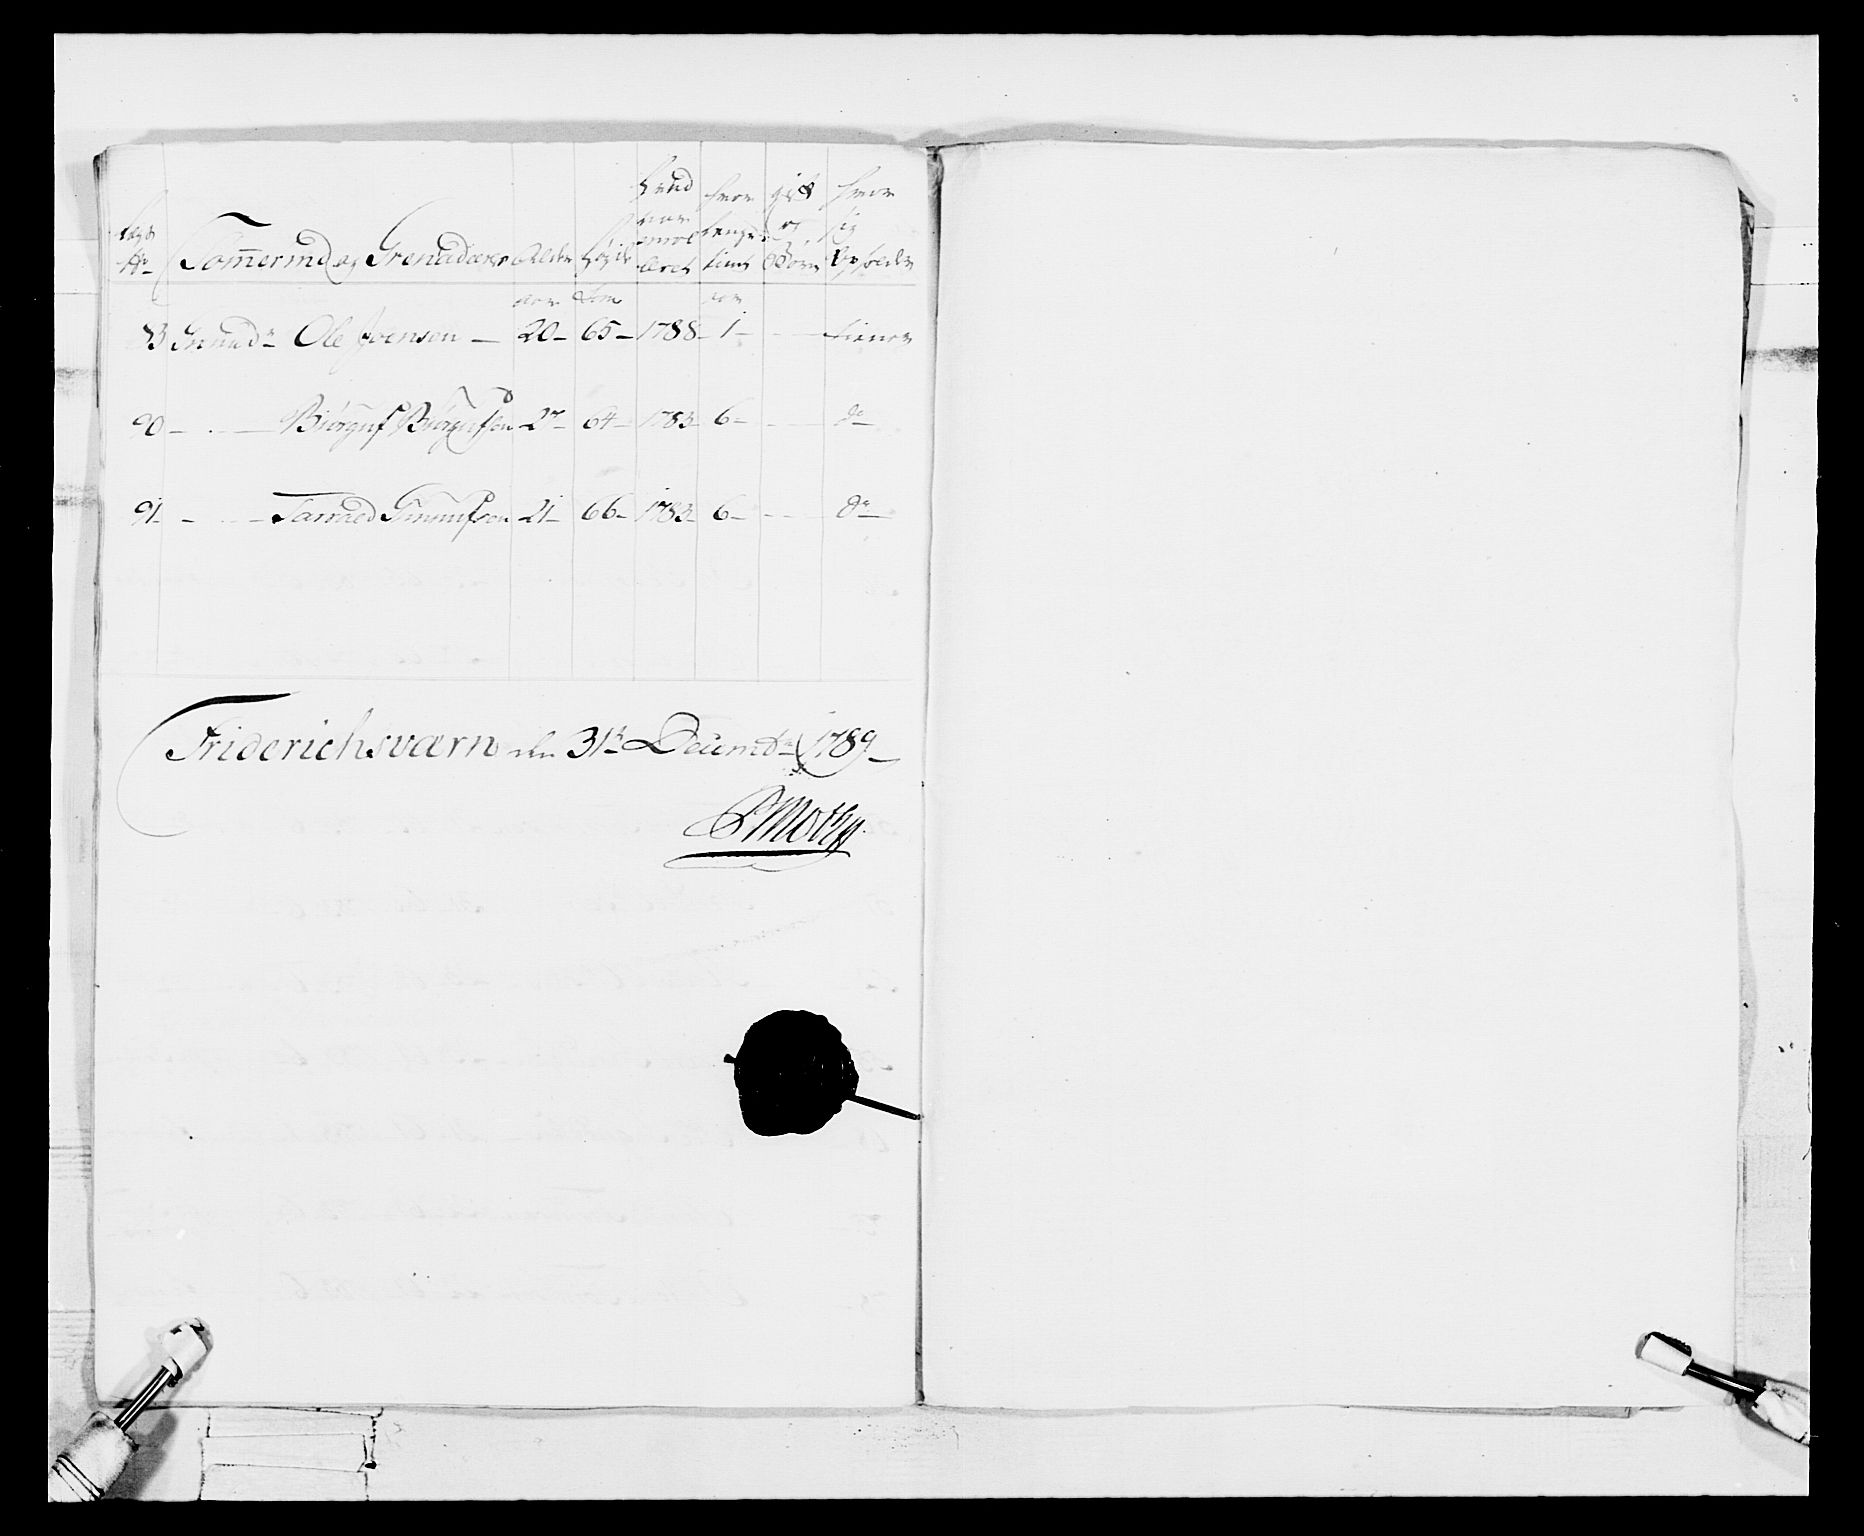 Lægs No Tommermd og Grenaderer Alder Høyde hvad aar enrol leret hvor lenge tient gift og Børn hvor sig opholder
aar Tom aar
83 Grenad: Ole Joensen — 20 — 65 — 1788 — 1 — tiener
90 — Biørguf Biørgufsen 27 — 64 — 1783 — 6 — do
91 — Tarraed Gunnufsen 21 — 66 — 1783 — 6 — do
Friderichsværn den 31te Decembr 1789 —